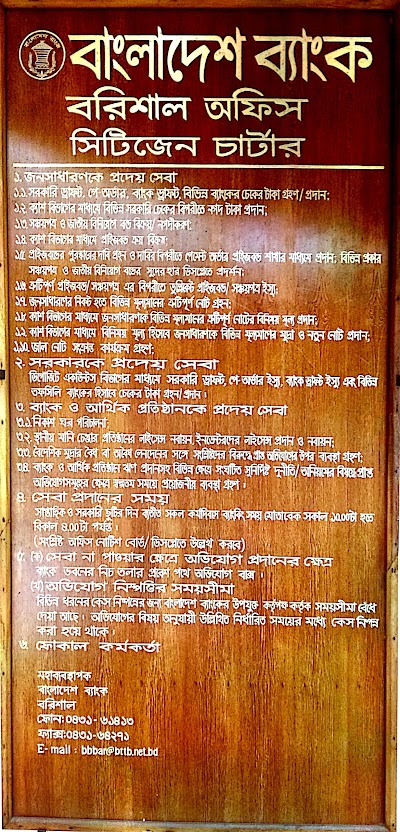 বাংলাদেশ ব্যাংক
বরিশাল অফিস
সিটিজেন চার্টার
১. জনসাধারণকে প্রদেয় সেবা
১.১. সরকারি ড্রাফট, পে-অর্ডার, ব্যাংক ড্রাফট, বিভিন্ন ব্যাংকের চেকের টাকা গ্রহণ/ প্রদান;
১.২ ক্যাশ বিভাগের মাধ্যমে বিভিন্ন সরকারি চেকের বিপরীতে নগদ টাকা প্রদান;
১.৩ সঞ্চয়পত্র ও জাতীয় বিনিয়োগ বন্ড বিক্রয়/ নগদীকরণ;
১.৪ ক্যাশ বিভাগের মাধ্যমে প্রাইজবন্ড ক্রয় বিক্রয়;
১.৫ প্রাইজবন্ডের পুরষ্কারের দাবি গ্রহন ও দাবির বিপরীতে পেমেন্ট অর্ডার প্রাইজবন্ড শাখার মাধ্যমে প্রদান; বিভিন্ন প্রকার
সঞ্চয়পত্র ও জাতীয় বিনিয়োগ বন্ডের সুদের হার ডিসপ্লেতে প্রদর্শন;
১.৬ ত্রুটিপূর্ণ প্রাইজবন্ড/ সঞ্চয়পত্র এর বিপরীতে ডুপ্লিকেট প্রাইজবন্ড/ সঞ্চয়পত্র ইস্যু;
১.৭ জনসাধারণের নিকট হতে বিভিন্ন মূল্যমানের ত্রুটিপূর্ণ নোট গ্রহন;
১.৮ ক্যাশ বিভাগের মাধ্যমে জনসাধারণকে বিভিন্ন মূল্যমানের ত্রুটিপূর্ণ নোটের বিনিময় মূল্য প্রদান;
১.৯ ক্যাশ বিভাগের মাধ্যমে বিনিময় মূল্য হিসেবে জনসাধারণকে বিভিন্ন মূল্যমানের মুদ্রা ও নতুন নোট প্রদান;
১.১০. জাল নোট সংক্রান্ত কার্যক্রম গ্রহণ;
২. সরকারকে প্রদেয় সেবা
ডিপোজিট একাউন্টস বিভাগের মাধ্যমে সরকারি ড্রাফট, পে-অর্ডার ইস্যু, ব্যাংক ড্রাফট ইস্যু এবং বিভিন্ন
তফসিলি ব্যাংকের হিসাবে চেকের টাকা গ্রহন/ প্রদান।
৩. ব্যাংক ও আর্থিক প্রতিষ্ঠানকে প্রদেয় সেবা
৩.১ নিকাশ ঘর পরিচালনা;
৩.২. স্থানীয় মানি চেঞ্জার প্রতিষ্ঠানের লাইসেন্স নবায়ন, ইনডেন্টরদের লাইসেন্স প্রদান ও নবায়ন;
৩.৩ বৈদেশিক মুদ্রার বৈধ বা অবৈধ লেনদেনের সঙ্গে সংশ্লিষ্টদের বিরুদ্ধে প্রাপ্ত অভিযোগের উপর ব্যবস্থা গ্রহণ;
৩.৪. ব্যাংক ও আর্থিক প্রতিষ্ঠান ঋণ প্রদানসহ বিভিন্ন ক্ষেত্রে সংঘটিত সুনির্দিষ্ট দুর্নীতি/ অনিয়মের বিষয়ে প্রাপ্ত
অভিযোগসমূহের ক্ষেত্রে স্বল্পতম সময়ে প্রয়োজনীয় ব্যবস্থা গ্রহণ।
৪. সেবা প্রদানের সময়
সাপ্তাহিক ও সরকারি ছুটির দিন ব্যতীত সকল কর্মদিবসে ব্যাংকিং সময় মোতাবেক সকাল ১০.০০টা হতে
বিকাল ৪.০০টা পর্যন্ত।
(সংশ্লিষ্ট অফিস নোটিশ বোর্ড/ ডিসপ্লেতে উল্লেখ করবে)
৫. (ক) সেবা না পাওয়ার ক্ষেত্রে অভিযোগ প্রদানের ক্ষেত্র
ব্যাংক ভবনের নিচ তলার প্রবেশ পথে অভিযোগ বাক্স।
(খ) অভিযোগ নিষ্পত্তির সময়সীমা
বিভিন্ন ধরনের কেস নিষ্পন্নের জন্য বাংলাদেশ ব্যাংকের উপযুক্ত কর্তৃপক্ষ কর্তৃক সময়সীমা বেঁধে
দেয়া আছে। অভিযোগের বিষয় অনুযায়ী উল্লিখিত নির্ধারিত সময়ের মধ্যে কেস নিষ্পন্ন
করা হয়ে থাকে।
৬. ফোকাল কর্মকর্তা
মহাব্যবস্থাপক
বাংলাদেশ ব্যাংক
বরিশাল
ফোন: ০৪৩১- ৬১৪১৩
ফ্যাক্স: ০৪৩১-৬৪২৭১
E- mail : bbbar@bttb.net.bd